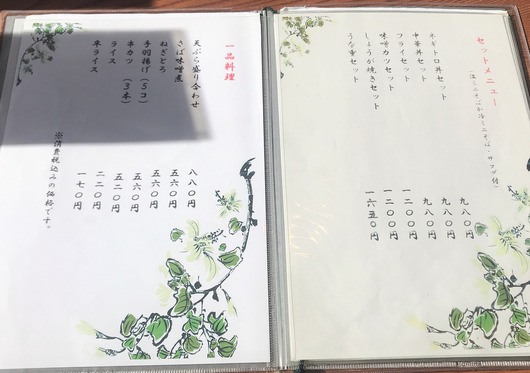 セットメニュー
ネギトロ丼セット 九八〇円
中華丼セット 九八〇円
フライセット 九八〇円
味噌カツセット 一二〇〇円
しょうが焼きセット 一二〇〇円
うな重セット 一六五〇円
一品料理
天ぷら盛り合わせ 八八〇円
さば味噌煮 五六〇円
ねぎとろ 五六〇円
手羽揚げ（5コ） 五六〇円
串カツ（3本） 五二〇円
ライス 二二〇円
半ライス 一七〇円
※消費税込みの価格です。